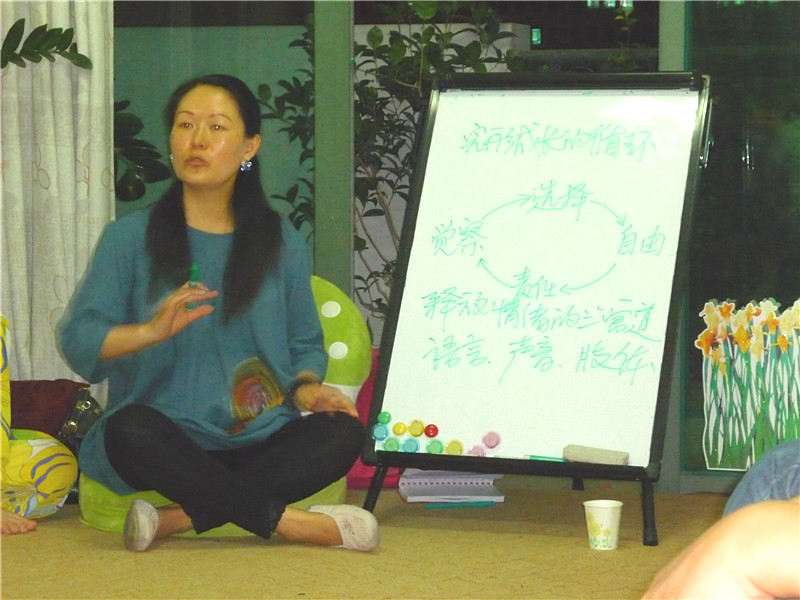 完形成长的循环
选择
觉察 自由
责任
释放情绪的三管道
语言、声音、肢体